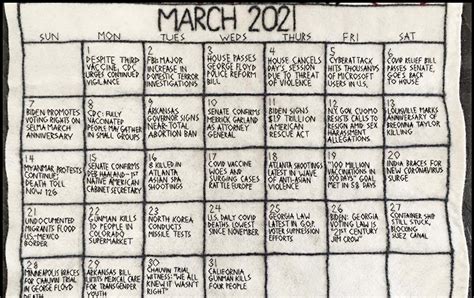 MARCH 2021
SUN MON TUES WEDS THURS FRI SAT
1
DESPITE THIRD
VACCINE, CDC
URGES CONTINUED
VIGILANCE
2
FBI: MAJOR
INCREASE IN
DOMESTIC TERROR
INVESTIGATIONS
3
HOUSE PASSES
GEORGE FLOYD
POLICE REFORM
BILL
4
HOUSE CANCELS
DAY'S SESSION
DUE TO THREAT
OF VIOLENCE
5
CYBERATTACK
HITS THOUSANDS
OF MICROSOFT
USERS IN U.S.
6
COVID RELIEF BILL
PASSES SENATE,
GOES BACK
TO HOUSE
7
BIDEN PROMOTES
VOTING RIGHTS ON
SELMA MARCH
ANNIVERSARY
8
CDC: FULLY
VACCINATED
PEOPLE MAY GATHER
IN SMALL GROUPS
9
ARKANSAS
GOVERNOR SIGNS
NEAR-TOTAL
ABORTION BAN
10
SENATE CONFIRMS
MERRICK GARLAND
AS ATTORNEY
GENERAL
11
BIDEN SIGNS
$1.9 TRILLION
AMERICAN
RESCUE ACT
12
NY GOV. CUOMO
RESISTS CALLS TO
RESIGN AMID SEX
HARASSMENT
ALLEGATIONS
13
LOUISVILLE MARKS
ANNIVERSARY OF
BREONNA TAYLOR
KILLING
14
MYANMAR PROTESTS
CONTINUE;
DEATH TOLL
NOW 126
15
SENATE CONFIRMS
DEB HAALAND - 1ST
NATIVE AMERICAN
CABINET SECRETARY
16
8 KILLED IN
ATLANTA
ASIAN SPA
SHOOTINGS
17
COVID VACCINE
WOES AND
SURGING CASES
RATTLE EUROPE
18
ATLANTA SHOOTINGS
LATEST IN WAVE
OF ANTI-ASIAN
VIOLENCE
19
"100 MILLION
VACCINATIONS
IN 100 DAYS"
GOAL MET
IN 58 DAYS
20
INDIA BRACES FOR
NEW CORONAVIRUS
SURGE
21
UNDOCUMENTED
MIGRANTS FLOOD
US-MEXICO
BORDER
22
GUNMAN KILLS
10 PEOPLE IN
COLORADO
SUPERMARKET
23
NORTH KOREA
CONDUCTS
MISSILE TESTS
24
U.S. DAILY COVID
DEATHS LOWEST
SINCE NOVEMBER
25
GEORGIA LAW
LATEST IN G.O.P.
VOTER SUPPRESSION
EFFORTS
26
BIDEN: GEORGIA
VOTING LAW IS
"21ST CENTURY
JIM CROW"
27
CONTAINER SHIP
STILL STUCK,
BLOCKING
SUEZ CANAL
28
MINNEAPOLIS BRACES
FOR CHAUVIN TRIAL
IN GEORGE FLOYD
29
ARKANSAS BILL
LIMITS MEDICAL CARE
FOR TRANSGENDER
YOUTH
30
CHAUVIN TRIAL
WITNESS: "WE ALL
KNEW IT WASN'T
RIGHT"
31
CALIFORNIA
GUNMAN KILLS
FOUR PEOPLE